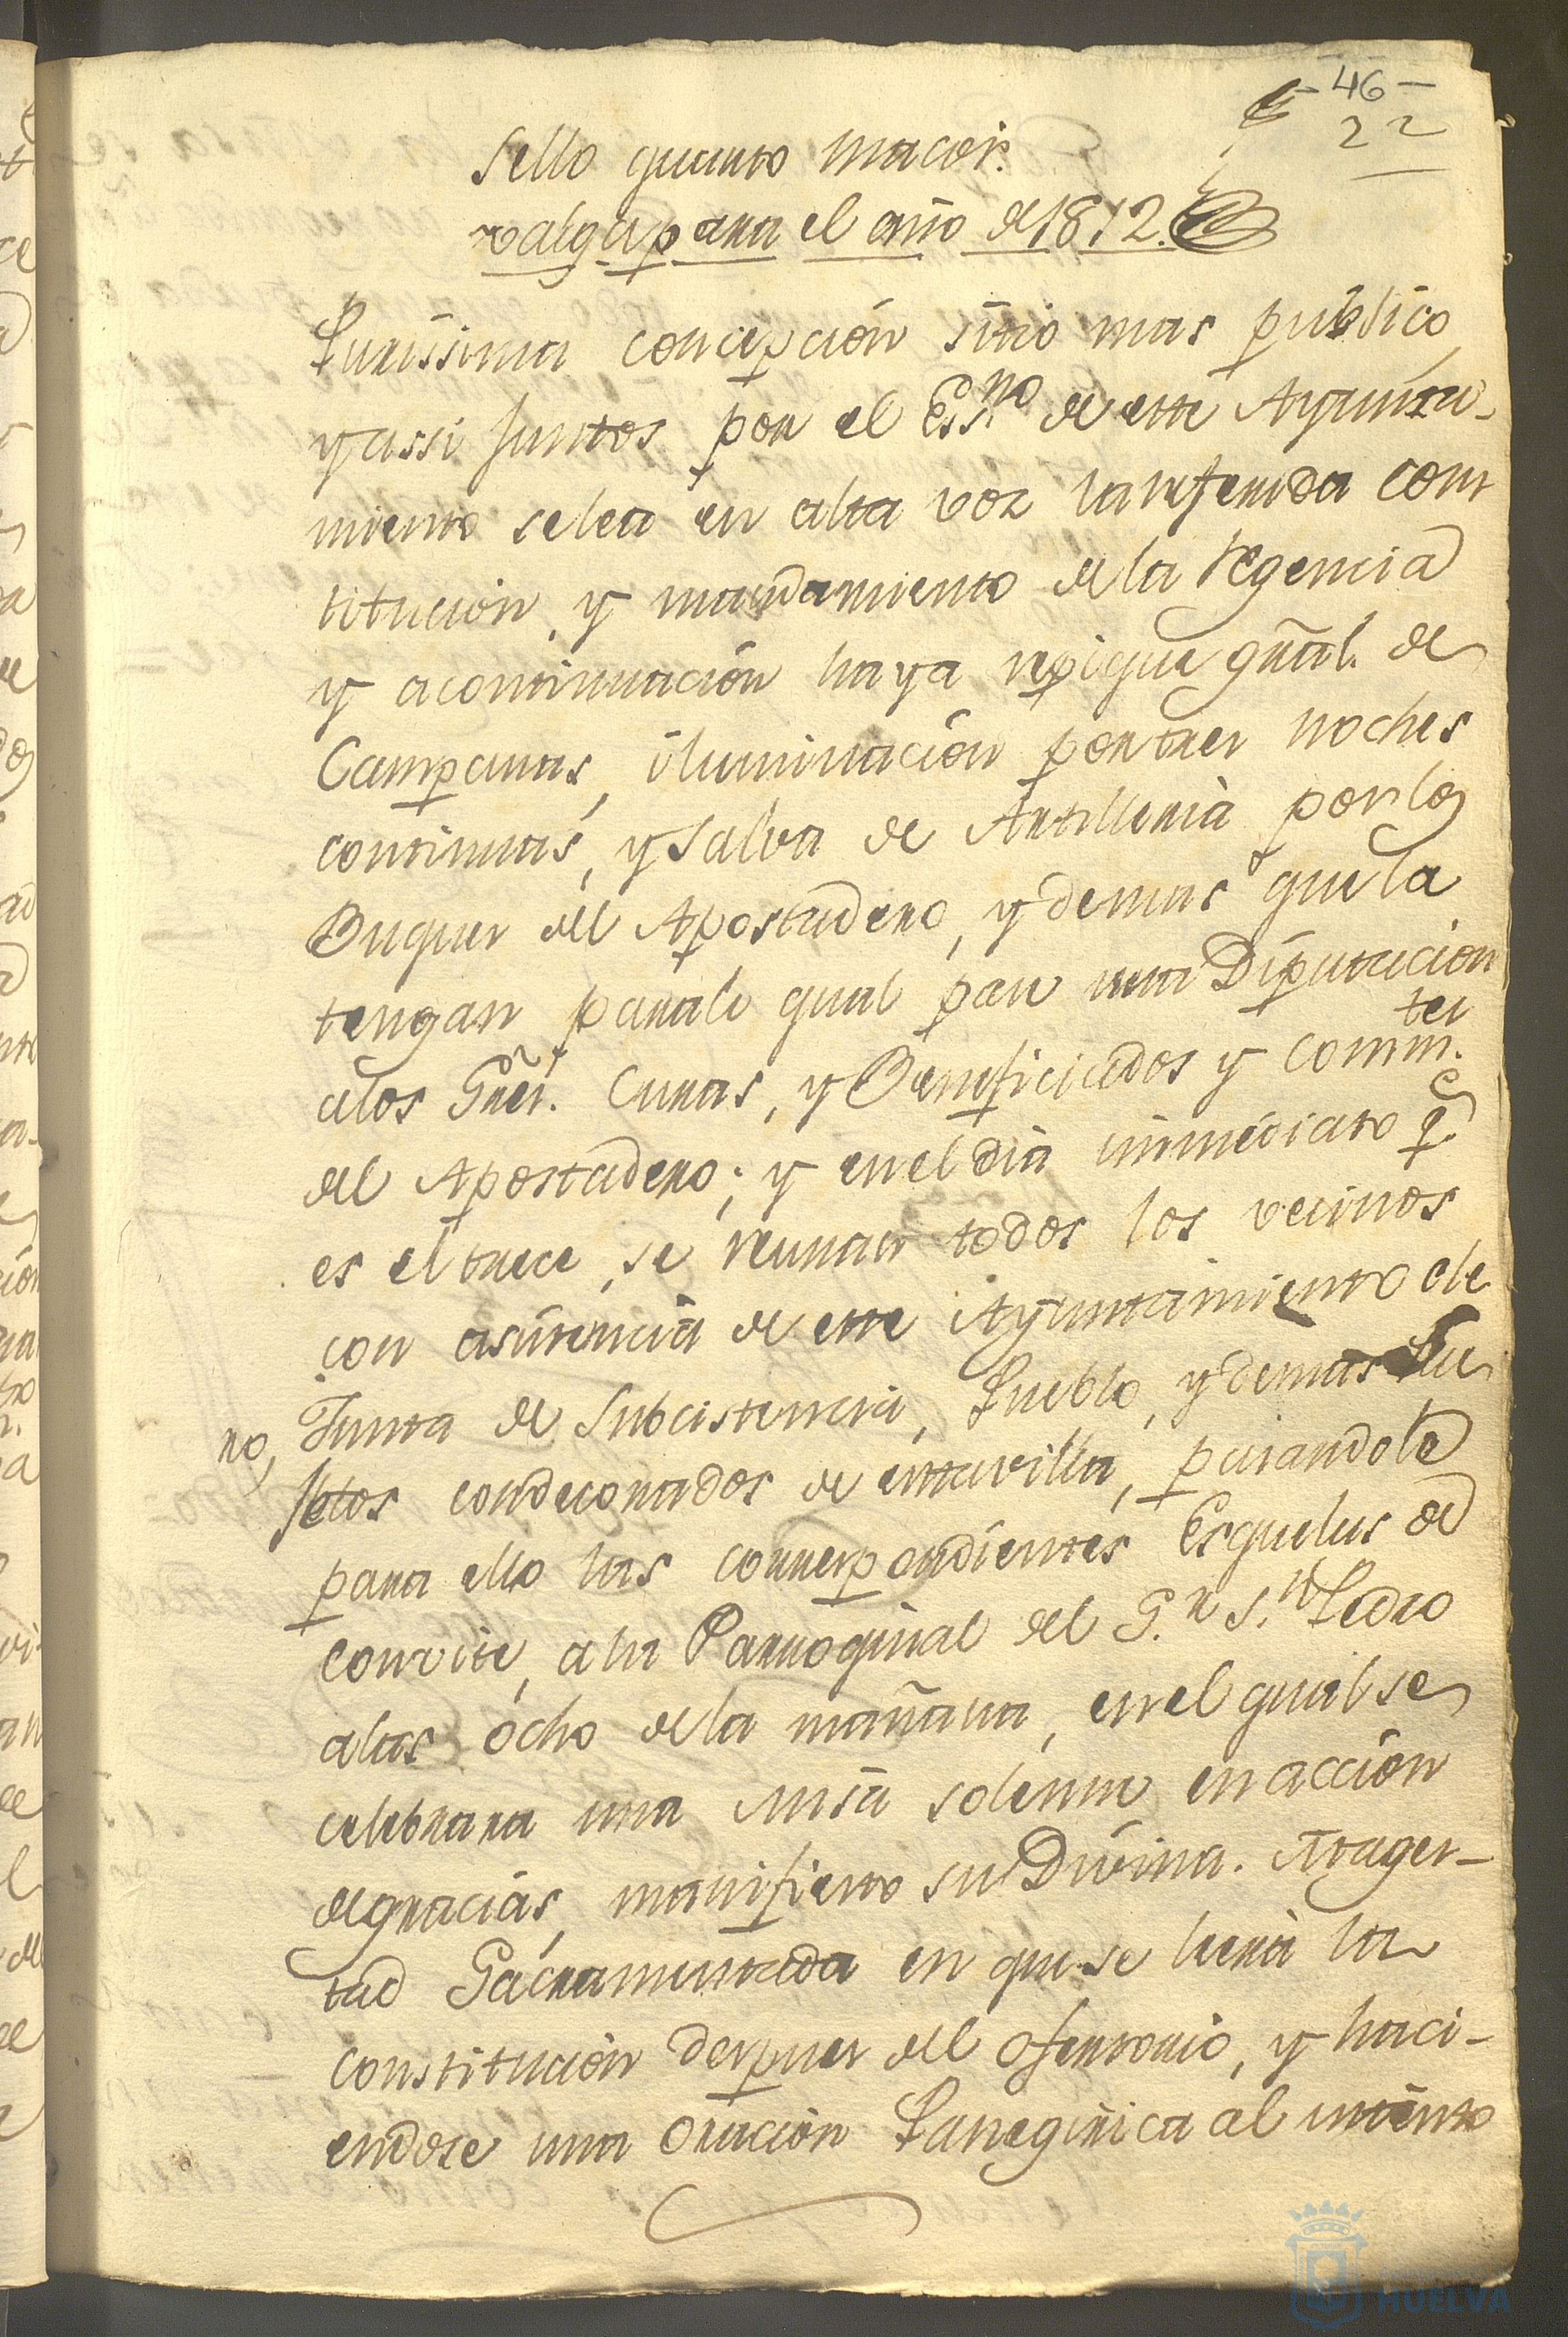 46
22
Sello quarto maior.
valga para el año de 1812.
Purissima concepción sitio mas público
y assi juntos por el Ess.no de este Ayunta-
miento se lea en alta voz la referida cons
titucion, y mandamiento de la Regencia
y acontinuación haya repique gñal. de
Campanas, iluminación por tres noches
continuas, y Salva de Artilleria por los
Buques del Apostadero, y demas que la
tengan para lo qual pase una Diputacion
alos Sres. Curas, y Beneficiados y comm.tes
del Apostadero; y en el dia inmediato q.e
es el trece, se reunan todos los vecinos
con asistencia de este Ayuntamiento de
Junta de Subcistencia, Pueblo, y demas Su
no, jetos condecorados de esta villa, pasandole
para ello las correspondientes Esquelas de
convite, a la Parroquial del S.r S.n Pedro
alas ocho de la mañana, en el qual se
celebrara una Misa solemne en acción
de gracias, manifiesto su Divina. Mages-
tad Sacramentada en que se leerá la
constitución despues del ofertorio, y haci-
endose una oración Panegirica al intento
HUELVA